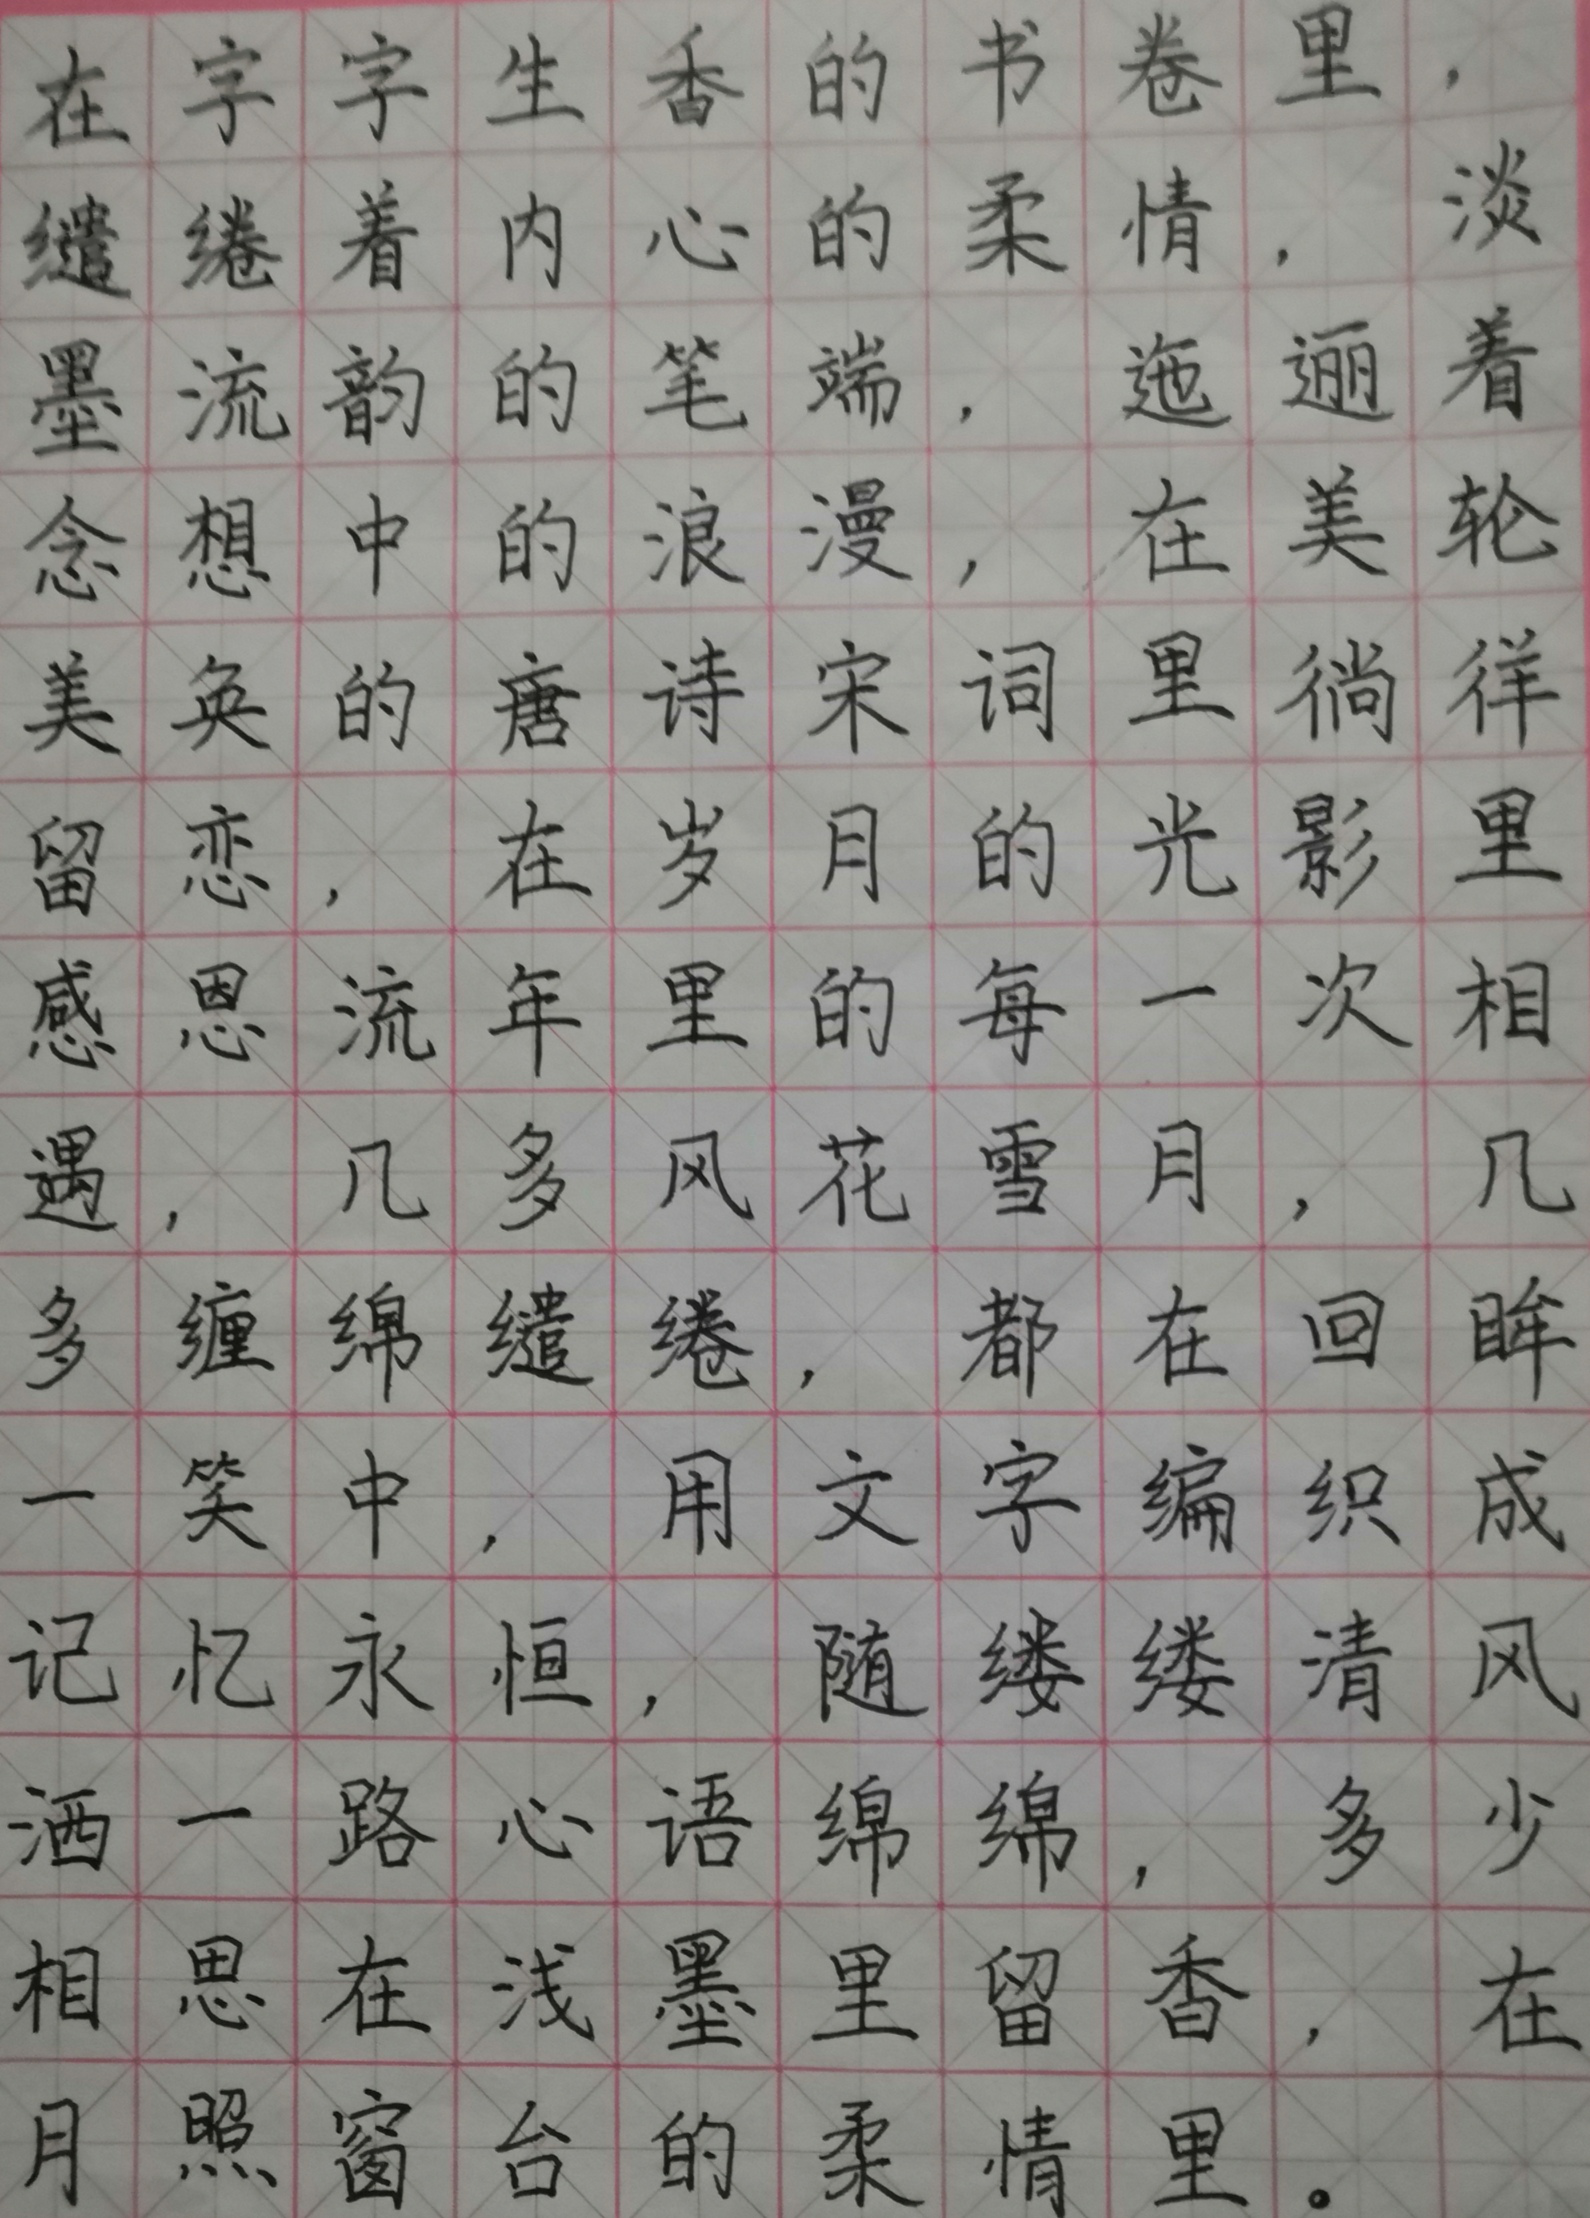 在字字生香的书卷里，
缱绻着内心的柔情，淡
墨流韵的笔端，迤逦着
念想中的浪漫，在美轮
美奂的唐诗宋词里徜徉
留恋，在岁月的光影里
感恩流年里的每一次相
遇，几多风花雪月，几
多缠绵缱绻，都在回眸
一笑中，用文字编织成
记忆永恒，随缕缕清风
洒一路心语绵绵，多少
相思在浅墨里留香，在
月照窗台的柔情里。